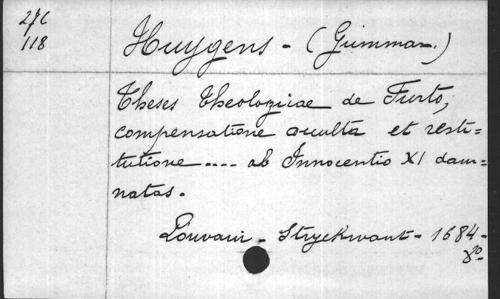 27C
118
Huygens - (Gummar.)
Theses Theologicae de Furto,
compensatione occulta et resti=
tutione .... ab Innocentio XI dam=
natas.
Louvain - Stryckwant - 1684 -
8º